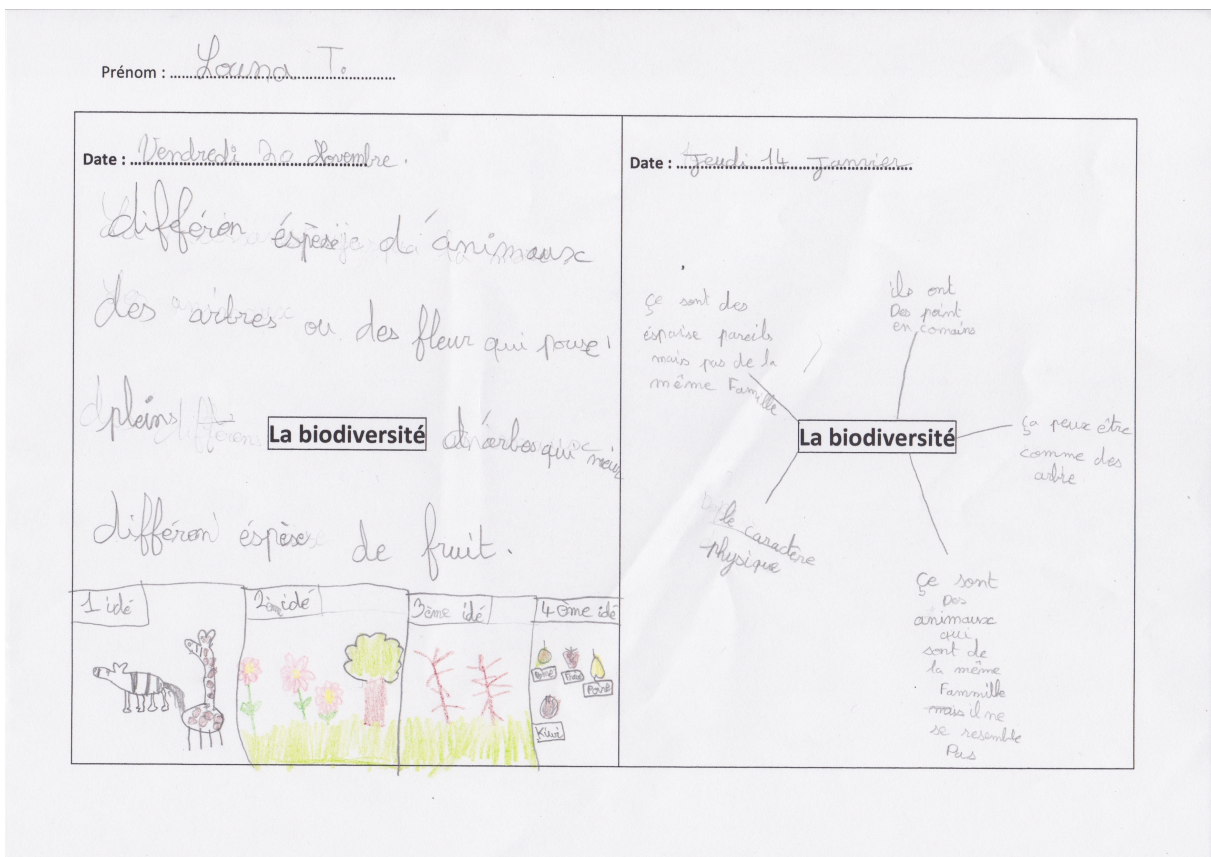 Prénom : Louna T.
Date : Vendredi 20 Novembre.
différon éspèse d'animaux
des arbres ou des fleur qui pouse
pleins d'arbes qui meur
La biodiversité
différon éspèse de fruit.
1 idé
2ème idé
3ème idé
4ème idé
Poire
Kiwi
Date : Jeudi 14 Janvier
çe sont des
éspaise pareils
mais pas de la
même Famille
ils ont
Des point
en comains
La biodiversité
ça peux être
comme des
arbre
le caractère
physique
çe sont
Des
animaux
qui
sont de
la même
Fammille
mais il ne
se resemble
Pas